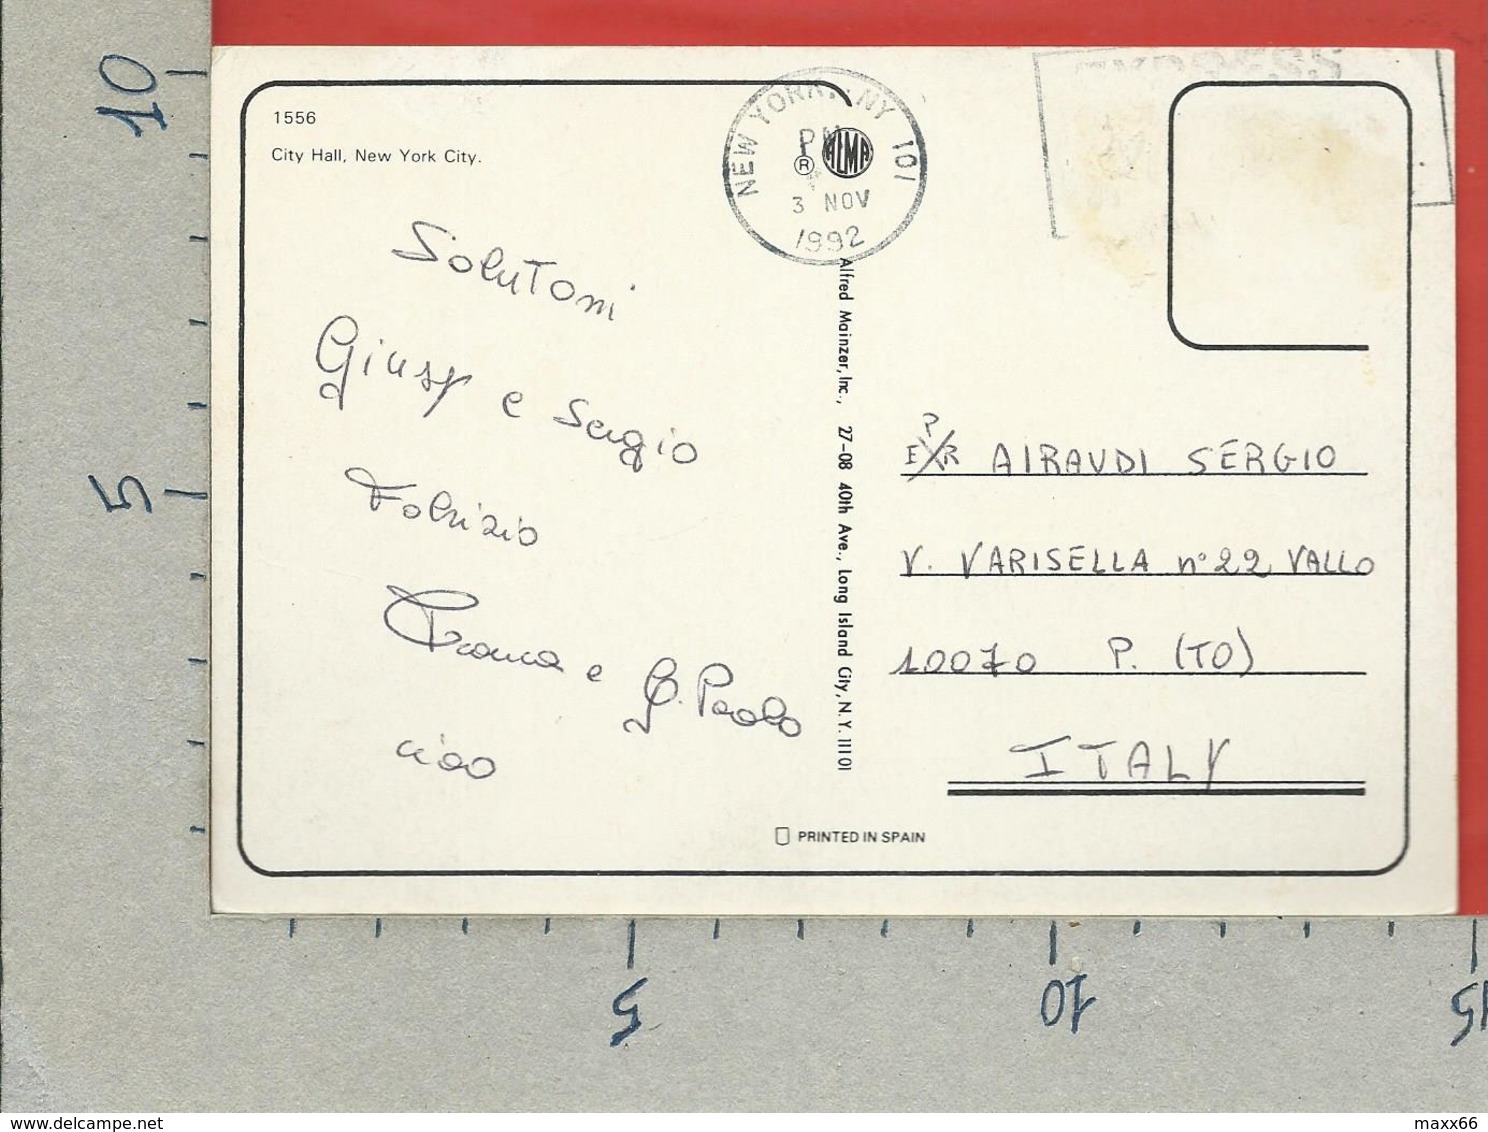 1556
City Hall, New York City.
NEW YORK, NY 101
PM
® ALMA
3 NOV
1992
Salutoni
Giusy e Sergio
Fabrizio
Franca e G. Paolo
ciao
Alfred Mainzer, Inc., 27-08 40th Ave., Long Island City, N.Y. 11101
AIRAUDI SERGIO
V. VARISELLA n° 22 VALLO
10070 P. (TO)
ITALY
PRINTED IN SPAIN
10
5
5
10
15
delcampe.net
maxx66